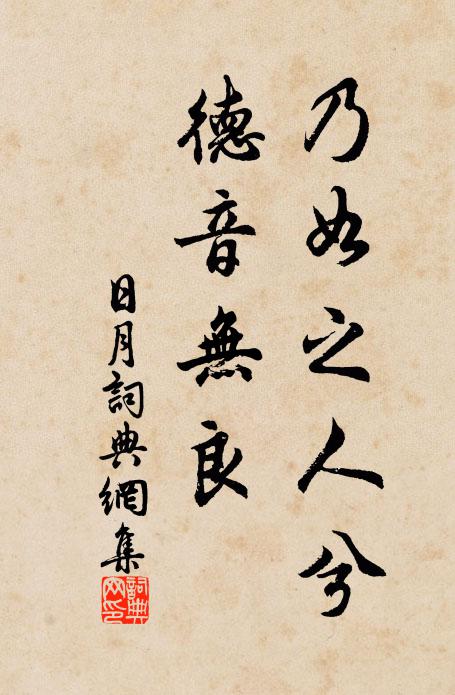 乃如之人兮
德音無良
日月詞典網集
詞典
网印